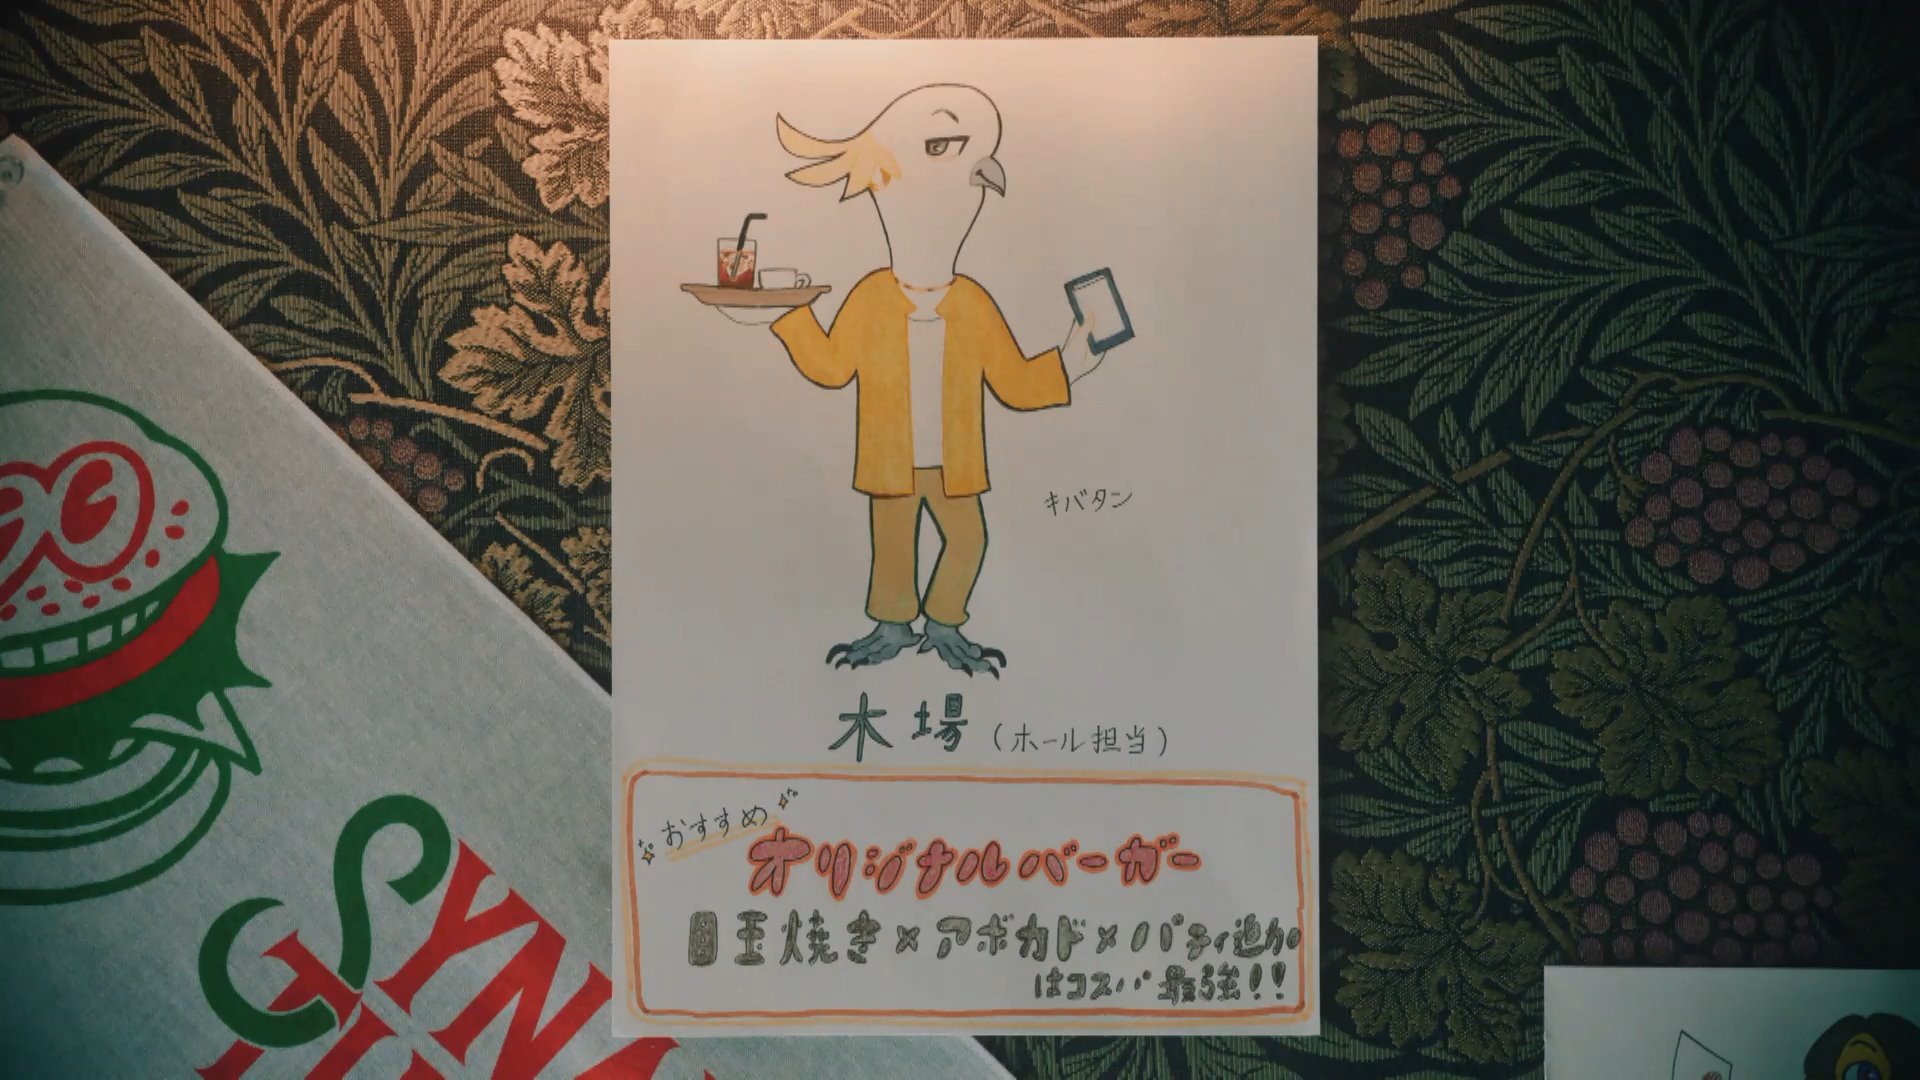 キバタン
木場（ホール担当）
おすすめ
オリジナルバーガー
目玉焼き×アボカド×パティ追加
はコスパ最強！！